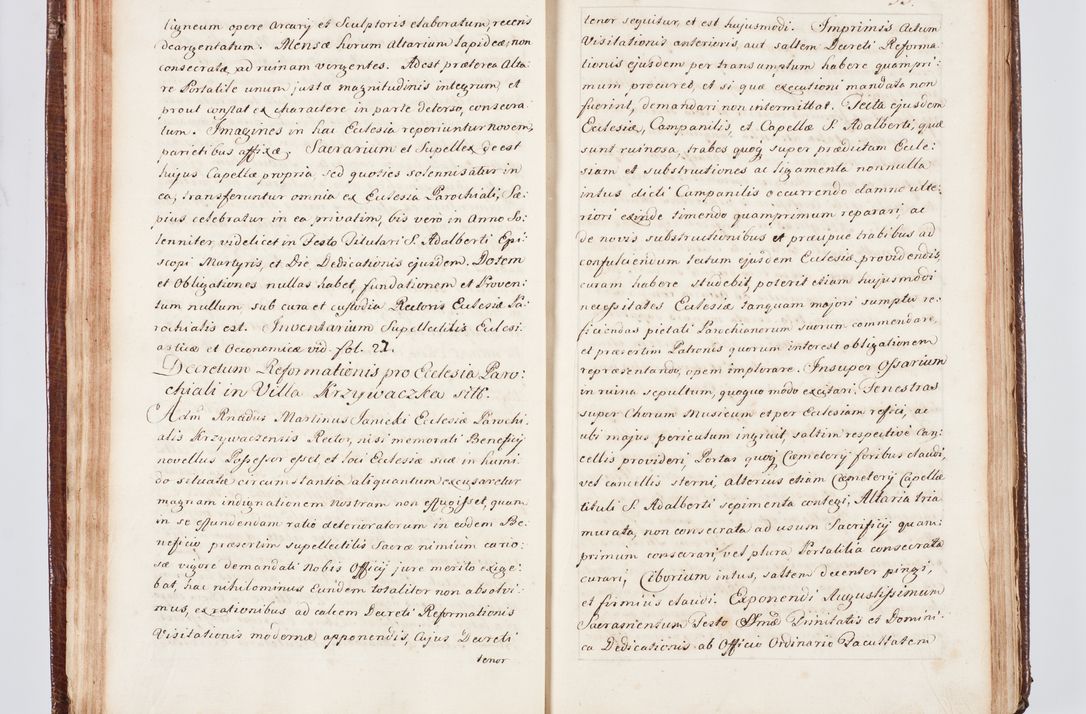 ligneum opere Arcarij et Sculptoris elaboratum, recens
deargentatum. Mensæ horum Altarium lapideæ, non
consecratæ, ad ruinam vergentes. Adest præterea Alta:
re Portatile unum justæ magnitudinis integrum, et
prout constat ex charactere in parte detorso, consecra:
tum. Imagines in hac Ecclesia reperiuntur novem,
parietibus affixæ. Sacrarium et Supellex deest
hujus Capellæ propria, sed quoties solennisatur in
ea, transferuntur omnia ex Ecclesia Parochiali, Sæ:
pius celebratur in ea privatim, bis vero in Anno So:
lenniter videlicet in Festo Titulari S. Adalberti Epi:
scopi Martyris, et Die Dedicationis ejusdem. Dotem
et Obligationes nullas habet, fundationem et Proven:
tum nullum sub cura et custodia Rectoris Ecclesiæ Pa:
rochialis est. Inventarium Supellectilis Eclesi:
asticæ et Oeconomicæ vid. fol. 21.
Decretum Reformationis pro Eclesia Paro:
chiali in Villa Krzywaczka sitt.
Adm Rndus Martinus Janicki Ecclesiæ Parochi:
alis Krzywaczensis Rector, nisi memorati Beneficij
novellus Possessor esset, et loci Ecclesiæ suæ in humi:
do situatæ circumstantia aliquantum excusaretur
magnam indignationem nostram non effugisset, quam
in se effundendam ratio deterioratorum in eodem Be:
neficio præsertim supellectilis Sacræ nimium cario:
sæ vigore demandati Nobis Officij jure merito exige:
bat, hac nihilominus Eundem totaliter non absolvi:
mus, ex rationibus ad calcem Decreti Reformationis
Visitationis modernæ apponendis, Cujus Decreti
tenor
tenor sequitur, et est hujusmodi. Imprimis Actum
Visitationis anterioris, aut saltem Decreti Reforma:
tionis ejusdem per transumptum habere quampri:
mum procuret, et si quæ executioni mandata non
fuerint, demandari non intermittat. Tecta ejusdem
Ecclesiæ, Campanilis, et Capellæ S. Adalberti, quæ
sunt ruinosa, trabes quoq super prædictam Eccle:
siam et substructiones ac ligamenta nonnulla
intus dicti Campanilis occurrendo damno ulte:
riori exinde timendo quamprimum reparari, ac
de novis substructionibus et præcipue trabibus ad
confulciendum tectum ejusdem Ecclesiæ providendis,
curam habere studebit, poterit etiam hujusmodi
necessitates Ecclesiæ tanquam majori sumptu re:
ficiendas pietati Parochianorum suorum commendare,
et præsertim Patronis quorum interest obligationem
repræsentando, opem implorare. Insuper Ossarium
in ruina sepultum, quoquo modo excitari. Fenestras
super Chorum Musicum et per Ecclesiam refici, ac
ubi majus periculum ingruit, saltim respective can:
cellis provideri, Portas quoq Cœmeterij foribus claudi,
vel cancellis sterni, alterius etiam Cœmeterij Capellæ
tituli S. Adalberti sepimenta contegi, Altaria tria
murata, non consecrata ad usum Sacrificij quam:
primum consecrari, vel plura Portatilia consecrata
curari, Ciborium intus, saltem decenter pingi,
et firmius claudi. Exponendi Augustissimum
Sacramentum Festo SSmæ Trinitatis et Domini:
ca Dedicationis ab Officio Ordinario Facultatem